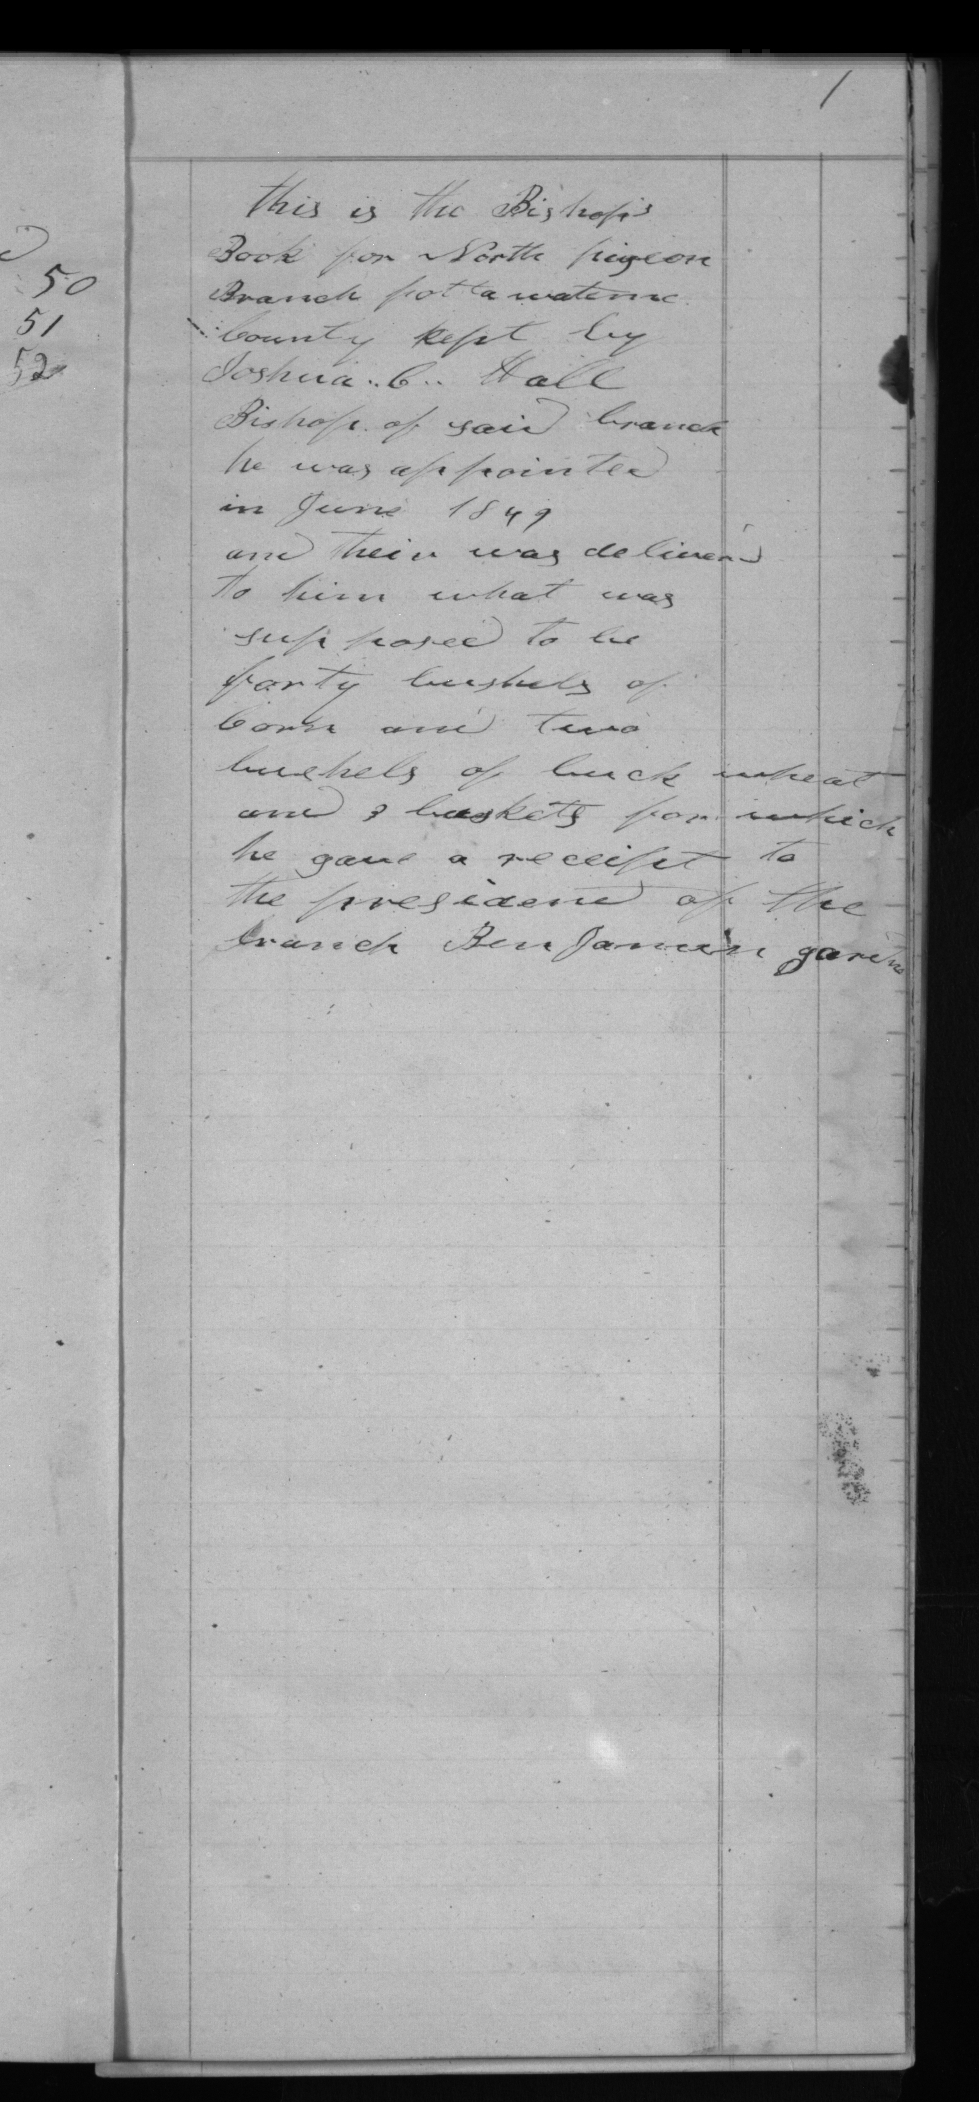 1
50
51
52
this is the Bishop's
Book for North pigeon
Branch pottawatime
County kept by
Joshua . C . Hall
Bishop of said branch
he was appointed
in June 1849
and their was deliverd
to him what was
supposed to be
forty bushels of
Corn and two
bushels of buck wheat
and 3 baskets for which
he gave a receipt to
the presidend of the
branch BenJamin